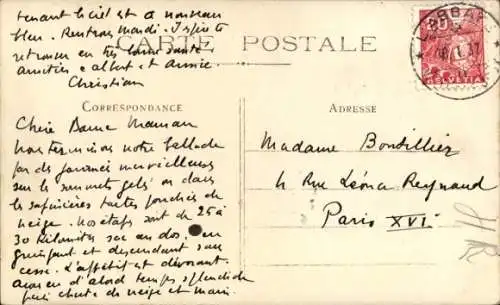 tenant le ciel est à nouveau
bleu. Rentrons mardi. J'espère te
retrouver en très bonne santé
amitiés à Albert et Annie.
Christian
CARTE POSTALE
ORBAY
HELVETIA
CORRESPONDANCE
ADRESSE
Chère Bonne Maman
Nous terminons notre ballade
par des journées merveilleuses
sur les sommets gelés ou dans
les sapinières toutes jonchées de
neige. Nos étapes sont de 25 à
30 kilomètres sac au dos, en
grimpant et descendant sans
cesse. L'appétit est dévorant.
Avons eu d'abord temps
puis chute de neige et main
Madame Bontillier
4 Rue Léonce Reynaud
Paris XVI